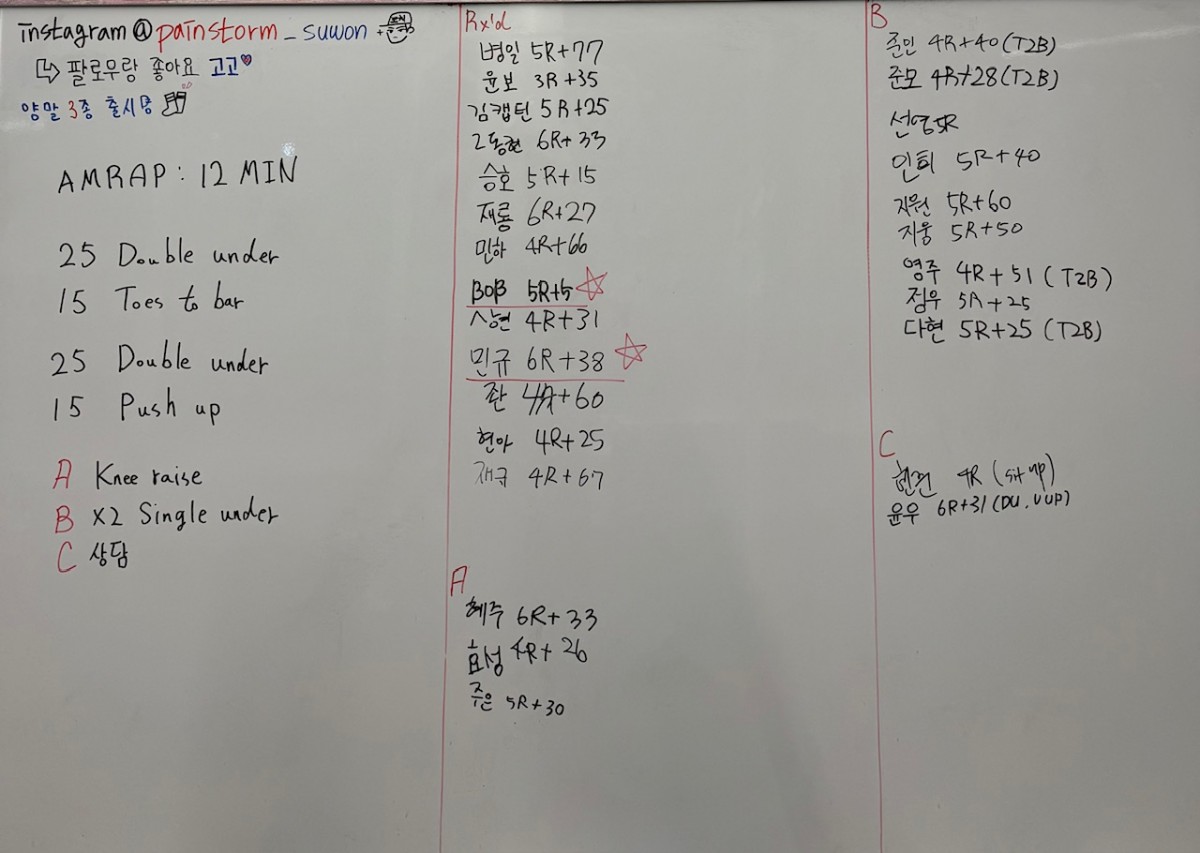 instagram @ painstorm_suwon
팔로우랑 좋아요 고고
양말 3종 출시명
AMRAP : 12 MIN
25 Double under
15 Toes to bar
25 Double under
15 Push up
A Knee raise
B X2 Single under
C 상담
Rx'd
병일 5R+77
윤보 3R+35
김캡틴 5R+25
2동현 6R+33
승호 5R+15
재룡 6R+27
민하 4R+66
BOB 5R+5
상현 4R+31
민규 6R+38
좐 4R+60
현아 4R+25
재국 4R+67
A
혜주 6R+33
효성 4R+26
주은 5R+30
B
준인 4R+40 (T2B)
준모 4R+28 (T2B)
선영 5R
인희 5R+40
지원 5R+60
지웅 5R+50
영주 4R+51 (T2B)
점우 5R+25
다현 5R+25 (T2B)
C
4R (sit up)
윤우 6R+31 (DU, V UP)